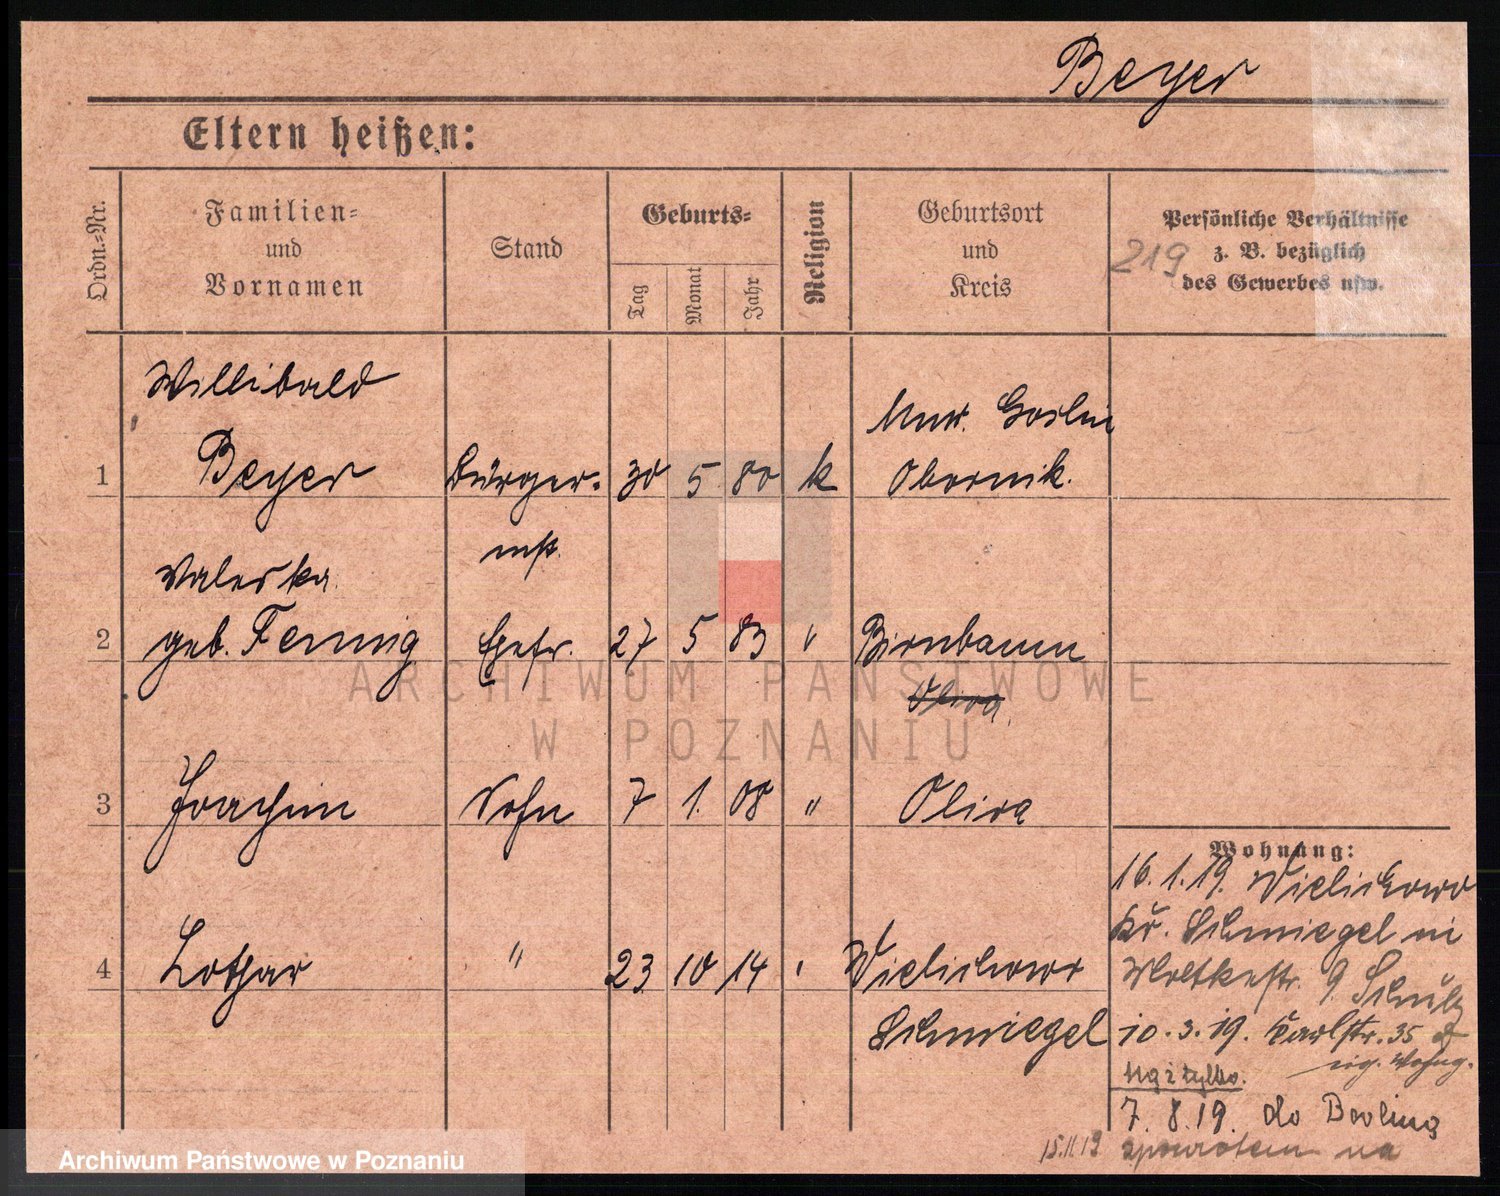 Beyer
Eltern heißen:
Ordn.=Nr.
Familien=
und
Vornamen
Stand
Geburts=
Tag
Monat
Jahr
Religion
Geburtsort
und
Kreis
Persönliche Verhältnisse
z. B. bezüglich
des Gewerbes usw.
219
Willibald
Mur. Goslin
1 Beyer Bürger- 30 5 80 k Obornik.
mst.
Valeska
2 geb. Fennig Ehefr. 27 5 83 " Birnbaum
Oliva
3 Joachim Sohn 7 1. 08 " Oliva
4 Lothar " 23 10 14 " Wielichowo
Schmiegel
Wohnung:
16.1.19. Wielichowo
Kr. Schmiegel
Moltkestr. 9. Schulz
10.3.19. Karlstr. 35
eig. Wohng.
7.8.19. do Berlina
15.11.19 zpowrotem na
ARCHIWUM PAŃSTWOWE
W POZNANIU
Archiwum Państwowe w Poznaniu